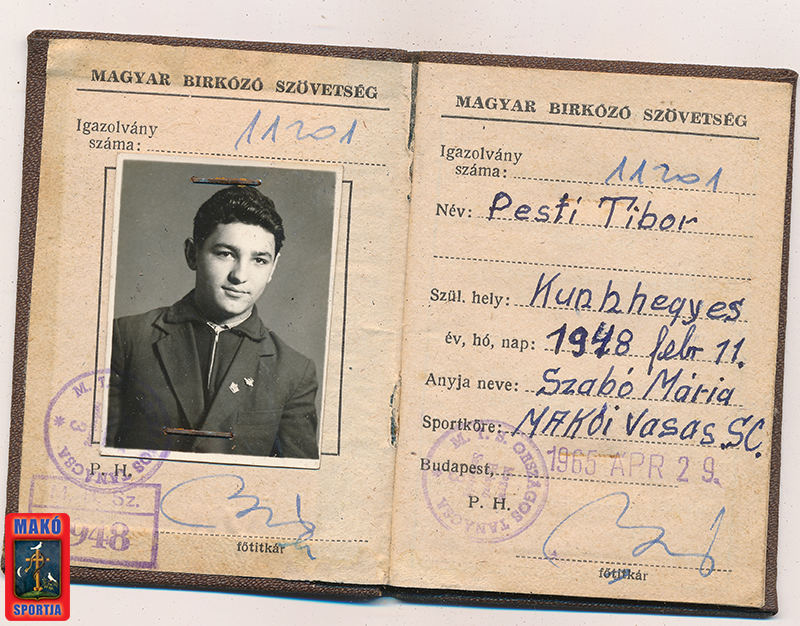 MAGYAR BIRKÓZÓ SZÖVETSÉG
Igazolvány
száma: 11201
P. H.
Sz.
1948
főtitkár
MAKÓ
SPORTJA
MAGYAR BIRKÓZÓ SZÖVETSÉG
Igazolvány
száma: 11201
Név: Pesti Tibor
Szül. hely: Kunhhegyes
év, hó, nap: 1948 febr 11.
Anyja neve: Szabó Mária
Sportköre: MAKÓi Vasas SC.
Budapest, 1965 APR 29.
M. T. S. ORSZÁGOS TANÁCSA
P. H.
főtitkár